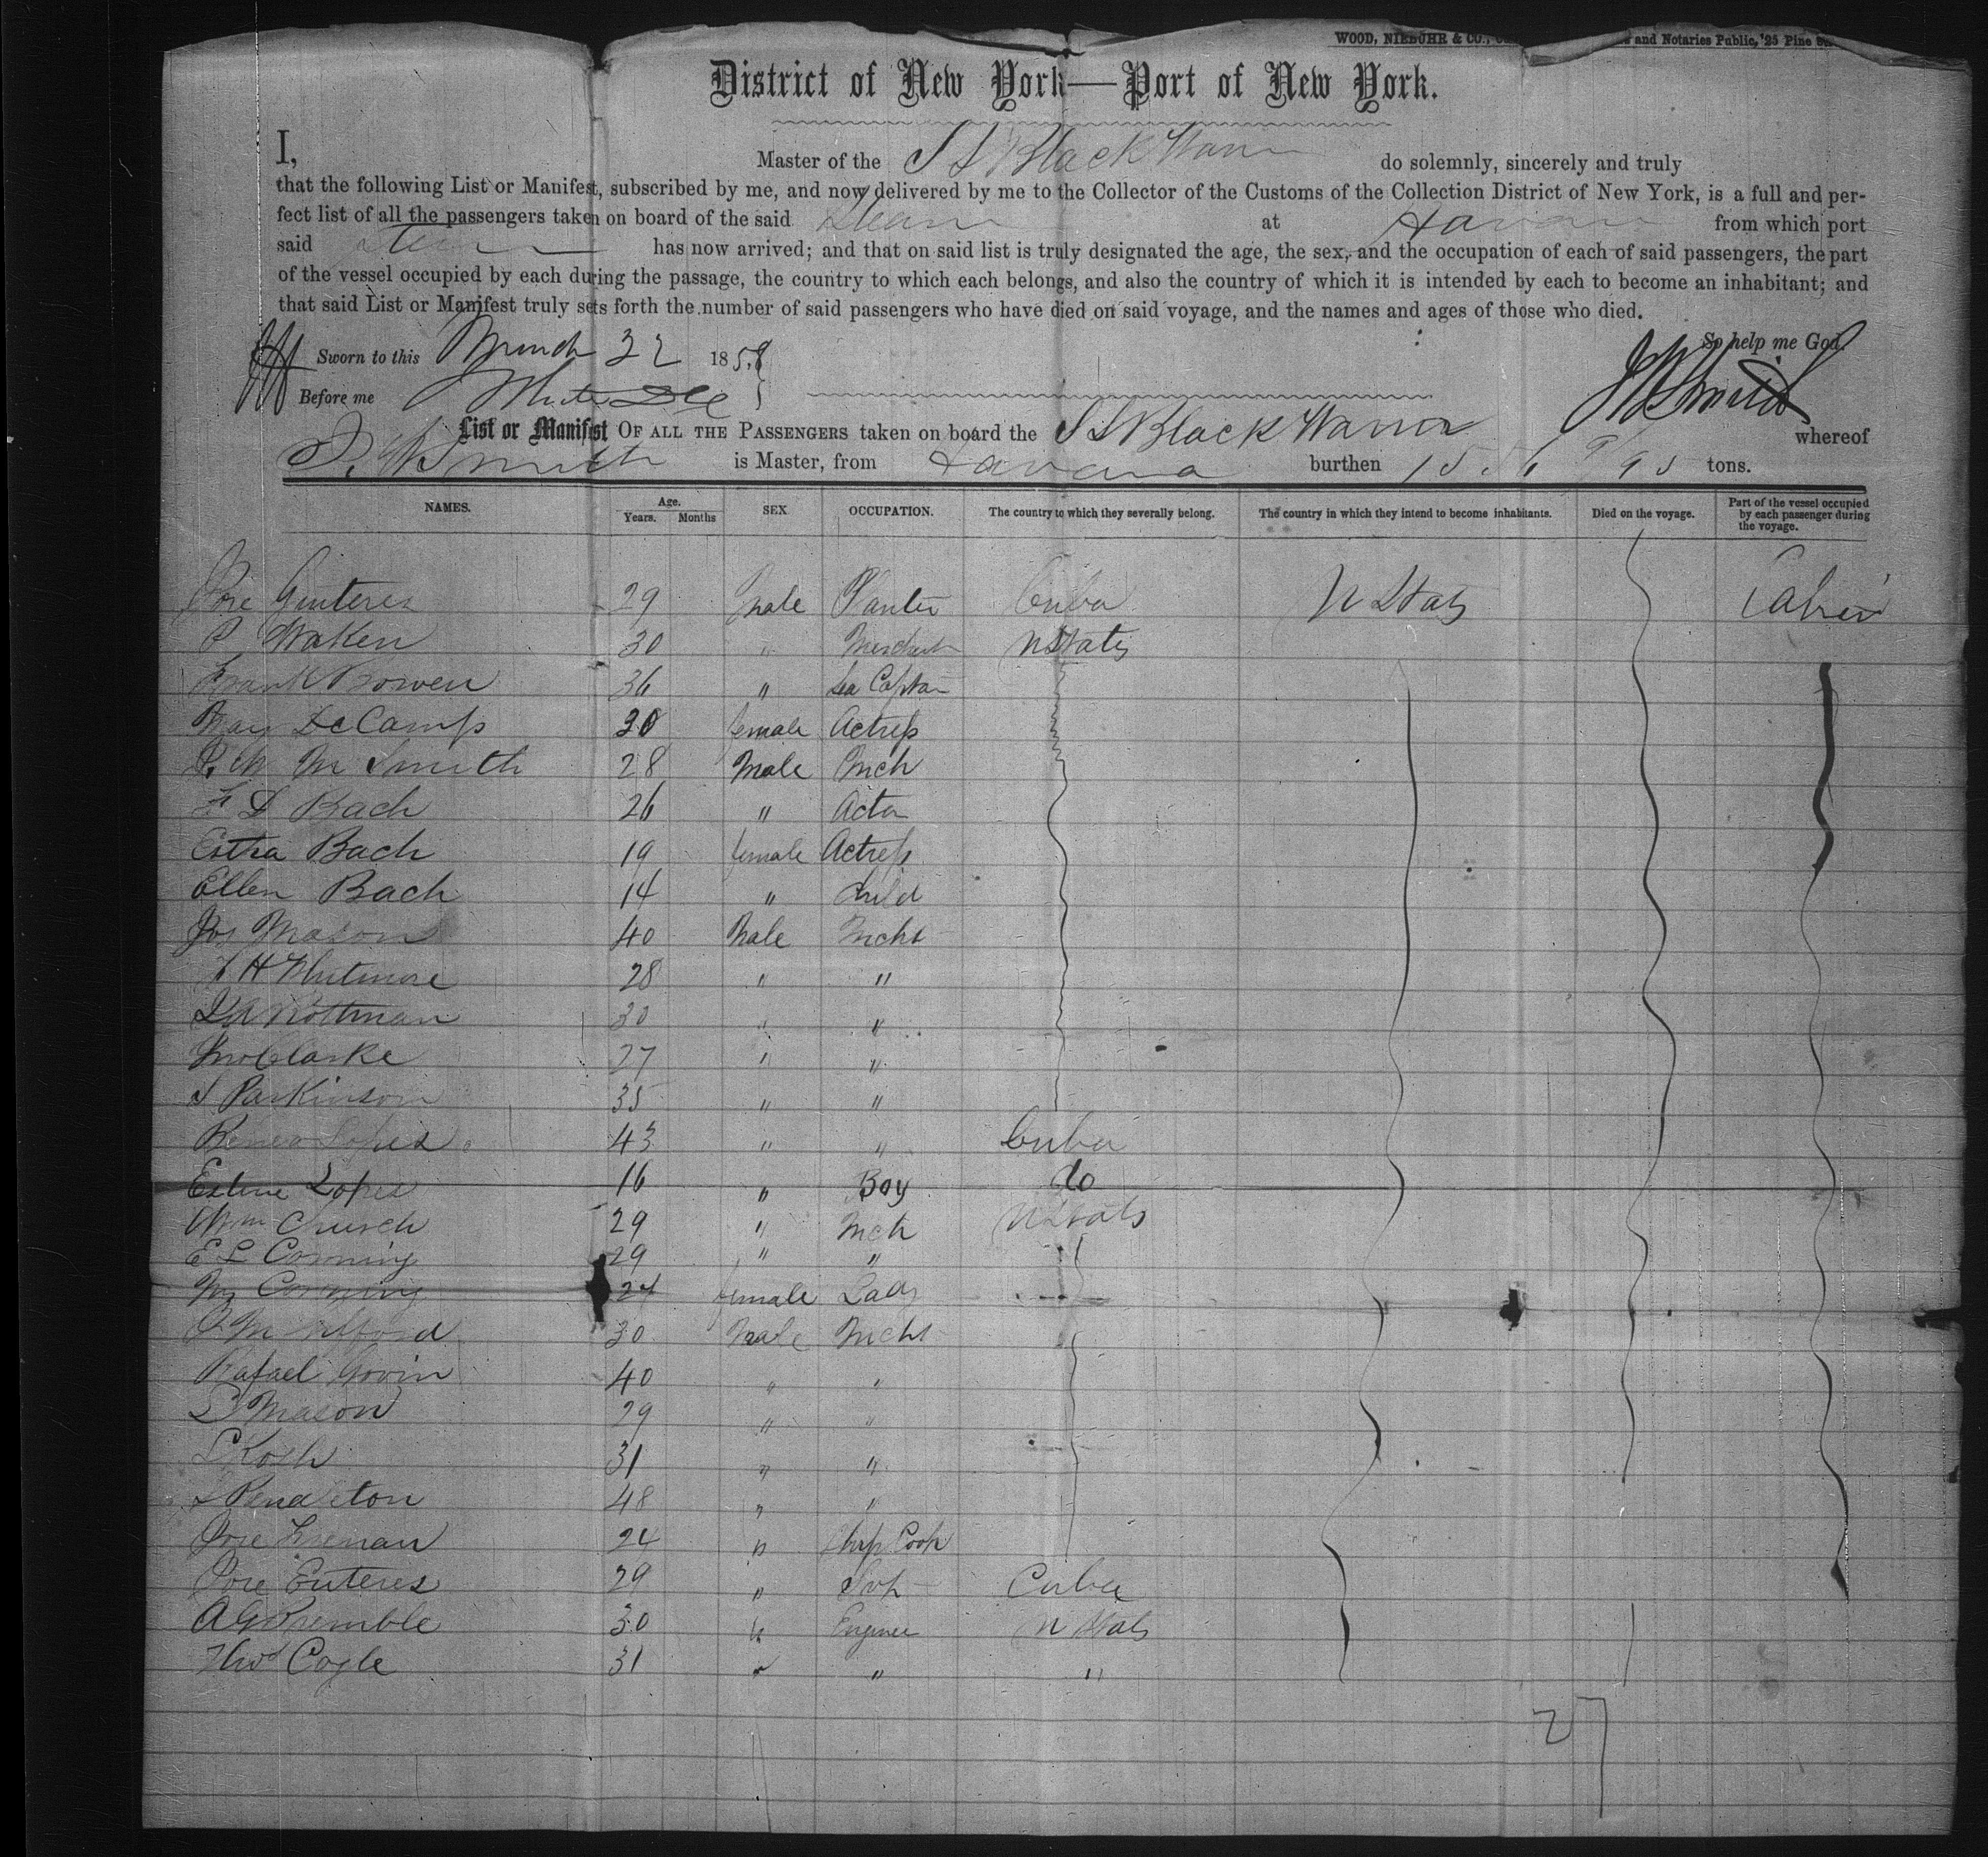 WOOD, NIEBUHR & CO., and Notaries Public, 25 Pine
District of New York—Port of New York.
I, Master of the S S Black Warr do solemnly, sincerely and truly
that the following List or Manifest, subscribed by me, and now delivered by me to the Collector of the Customs of the Collection District of New York, is a full and per-
fect list of all the passengers taken on board of the said Steam at Havana from which port
said Steam has now arrived; and that on said list is truly designated the age, the sex, and the occupation of each of said passengers, the part
of the vessel occupied by each during the passage, the country to which each belongs, and also the country of which it is intended by each to become an inhabitant; and
that said List or Manifest truly sets forth the number of said passengers who have died on said voyage, and the names and ages of those who died.
So help me God.
Sworn to this March 22 1858
Before me
J W Smith
List or Manifest OF ALL THE PASSENGERS taken on board the S S Black Warrior whereof
J. W Smith is Master, from Havana burthen 1556 tons.
NAMES. Age. Years. Months SEX. OCCUPATION. The country to which they severally belong. The country in which they intend to become inhabitants. Died on the voyage. Part of the vessel occupied by each passenger during the voyage.
Jose Guiteres 29 male Planter Cuba U States Cabin
Waken 30 " Merchant U States
Frank Bowen 36 " Sea Captan
Mary De Camp 30 female Actress
M Smith 28 Male Mch
F D Bach 26 " Actor
Estra Bach 19 female Actress
Ellen Bach 14 " Child
Jos Mason 40 Male Mcht
H Whitmore 28 " "
Rottman 30 " "
Jno Clarke 27 " "
S Parkinson 35 " "
Lopes 43 " " Cuba
Lopes 16 " Boy do
Wm Church 29 " Mch U States
E L Corning 29 " "
Mrs Corning 24 female Lady
30 Male Mcht
Rafael Govin 40 " "
S Mason 29 " "
L Koch 31 " "
S Pendleton 48 " "
Jose 24 " Ships Cook
Jose Enteres 29 " Cuba
A G Kremble 30 " Engineer U States
Thos Cogle 31 " " "
27